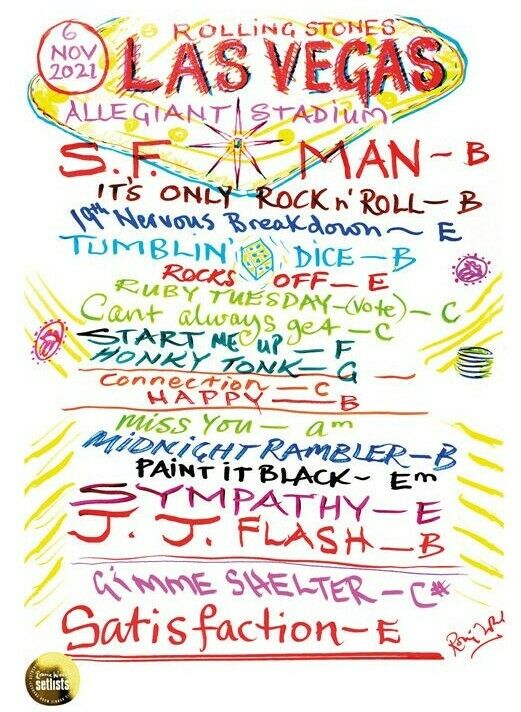 6
NOV
2021
ROLLING STONES'
LAS VEGAS
ALLEGIANT STADIUM
S.F. MAN - B
IT'S ONLY ROCK n' ROLL - B
19th Nervous Breakdown ~ E
TUMBLIN' DICE - B
ROCKS OFF - E
RUBY TUESDAY - (Vote) - C
Cant always get - C
START ME UP - F
HONKY TONK - G
Connection - C
HAPPY - B
MISS YOU - am
MIDNIGHT RAMBLER - B
PAINT IT BLACK ~ Em
SYMPATHY - E
J. J. FLASH - B
GIMME SHELTER - C#
Satisfaction - E
Ronnie Wood
setlists